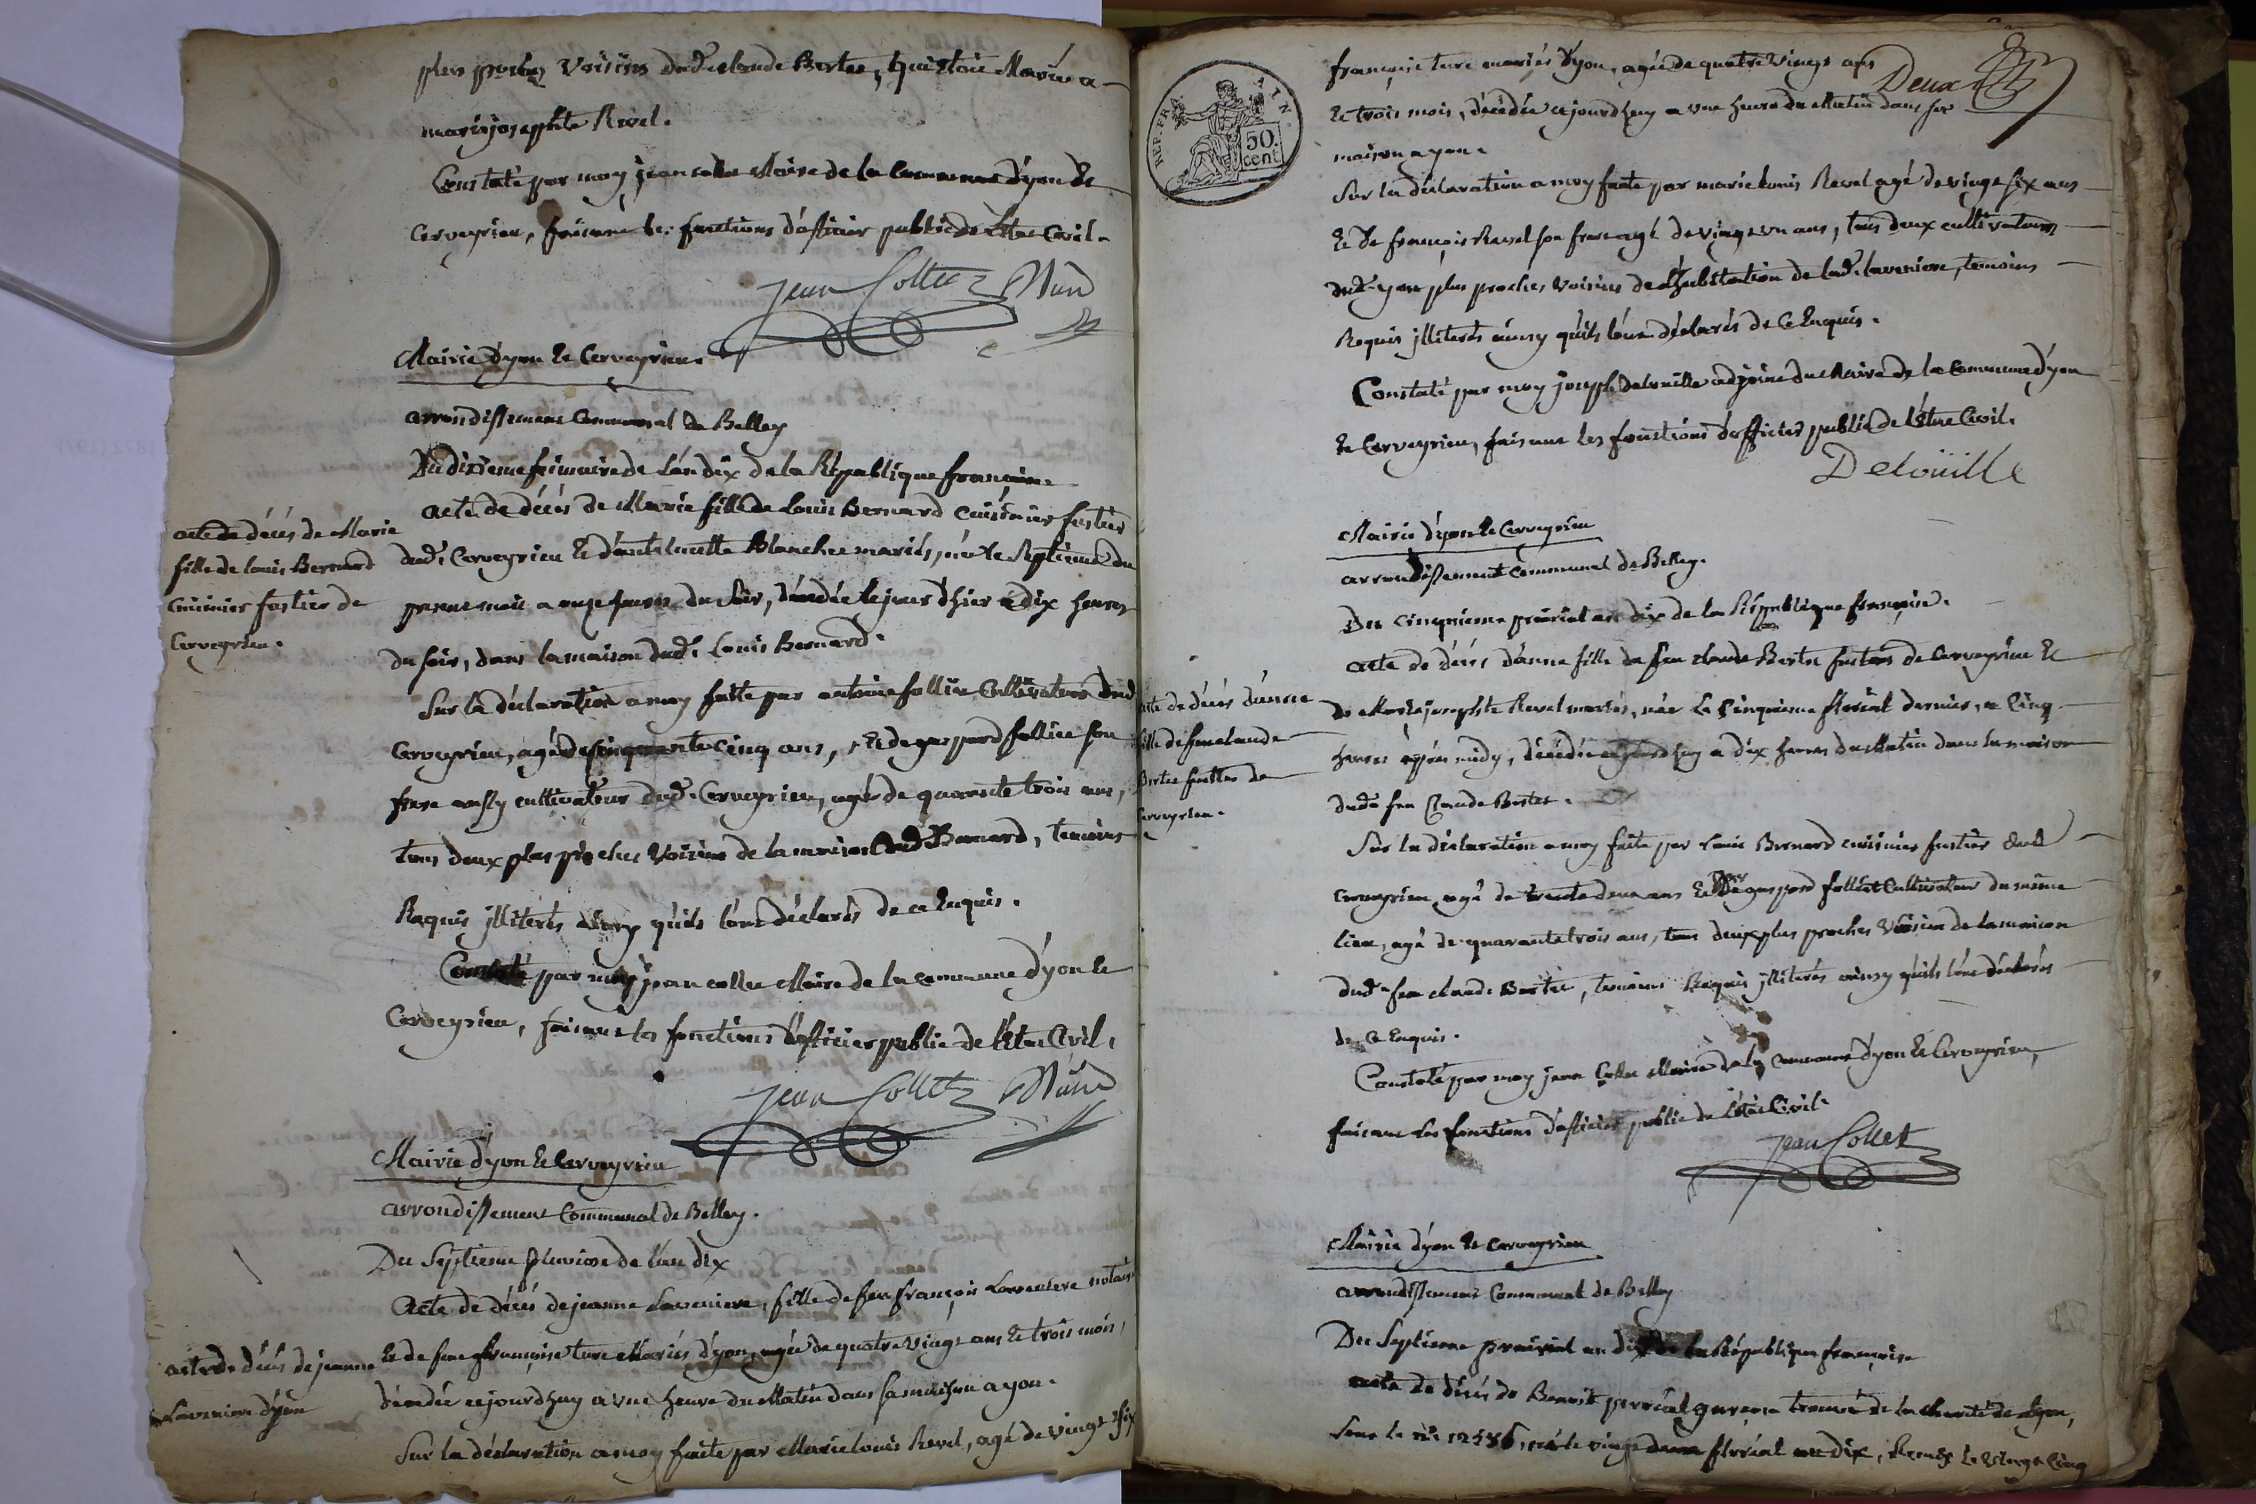 plus proches voisins dud. claude Bertet, qui etoit Marié a
mariejosephte Revel.
Constaté par moy jean collet Maire de la Commune d'yon et
Cerveyrieu, faisant les fonctions d'officier public de l'etat Civil.
jean Collet Maire
Mairie d'yon et Cerveyrieu.
arrondissement Communal de Belley
Du dixieme frimaire de l'an dix de la République françoise
acte de décès de Marie fille de Louis Bernard Cuisinier fustier
acte de décés de Marie
fille de louis Bernard
Cuisinier fustier de
Cerveyrieu.
dud. Cerveyrieu et d'anthelmette Blanchet mariés, née le Septieme du
present mois a onze heures du soir, décédée le jour d'hier a dix heures
du soir, dans la maison dud. Louis Bernard.
Sur la déclaration a moy faite par antoine follier Cultivateur dud.
Cerveyrieu, agé de cinquante cinq ans, et de gaspard follier son
frere aussy cultivateur dud. Cerveyrieu, agé de quarante trois ans,
tous deux plus proches voisins de la maison dud Bernard, temoins
Requis jlliterés ainsy qu'ils l'ont déclarés de ce Enquis.
Constaté par moy jean collet Maire de la commune d'yon et
Cerveyrieu, faisant les fonctions d'officier public de l'etat Civil.
jean Collet Maire
Mairie d'yon et Cerveyrieu
arrondissement Communal de Belley.
Du Septieme pluviose de l'an dix
Acte de décés de jeanne Laveniere, fille de feu françois Laveniere notaire
acte de décés de jeanne
Laveniere d'yon
et de feue françoise ture Mariés d'yon, agée de quatre vingt ans et trois mois,
décédée cejourd'huy a une heure du Matin dans sa maison a yon.
Sur la déclaration a moy faite par Marie louis Revel, agé de vingt six
REP. FRA. AIN
50. cent
Deux
françoise ture mariés d'yon, agée de quatre vingt ans
et trois mois, décédée cejourd'huy a une heure du Matin dans sa
maison a yon.
Sur la déclaration a moy faite par marie louis Revel agé de vingt six ans
Et de françois Revel son frere agé de vingt un ans, tous deux cultivateurs
dud. yon plus proches voisins de l'habitation de lad. laveniere, temoins
Requis jlliterés ainsy qu'ils l'ont déclarés de Ce Enquis.
Constaté par moy joseph delouille adjoint du Maire de la Commune d'yon
et Cerveyrieu, faisant les fonctions d'officier public de l'Etat Civil.
Deloüille
Mairie d'yon et Cerveyrieu
arrondissement Communal de Belley.
Du cinquieme prairial an dix de la République françoise.
acte de décés d'anne fille de feu claude Bertet fustier de Cerveyrieu et
acte de décés d'anne
fille de feu claude
Bertet fustier de
Cerveyrieu.
de Mariejosephte Revel mariés, née le Cinquieme floréal dernier, a Cinq
heures aprés midy, décédée cejourd'huy a dix heures du Matin dans la maison
dud. feu Claude Bertet.
Sur la déclaration a moy faite par Louis Bernard cuisinier fustier dud.
Cerveyrieu, agé de trente deux ans Et par gaspard follier Cultivateur du même
lieu, agé de quarante trois ans, tous deux plus proches Voisins de la maison
dud. feu claude Bertet, temoins Requis jlliterés ainsy qu'ils l'ont déclarés
de Ce Enquis.
Constaté par moy jean Collet Maire de la Commune d'yon et Cerveyrieu,
faisant les fonctions d'officier public de l'etat Civil.
jean Collet
Mairie d'yon et Cerveyrieu
arrondissement Communal de Belley
Du Septieme prairial an dix de la République françoise
acte de décés de Benoit perréal garçon trouvé de la charité de Lyon,
Sous le n. né le vingt deux floréal an Dix, Remis le vingt Cinq